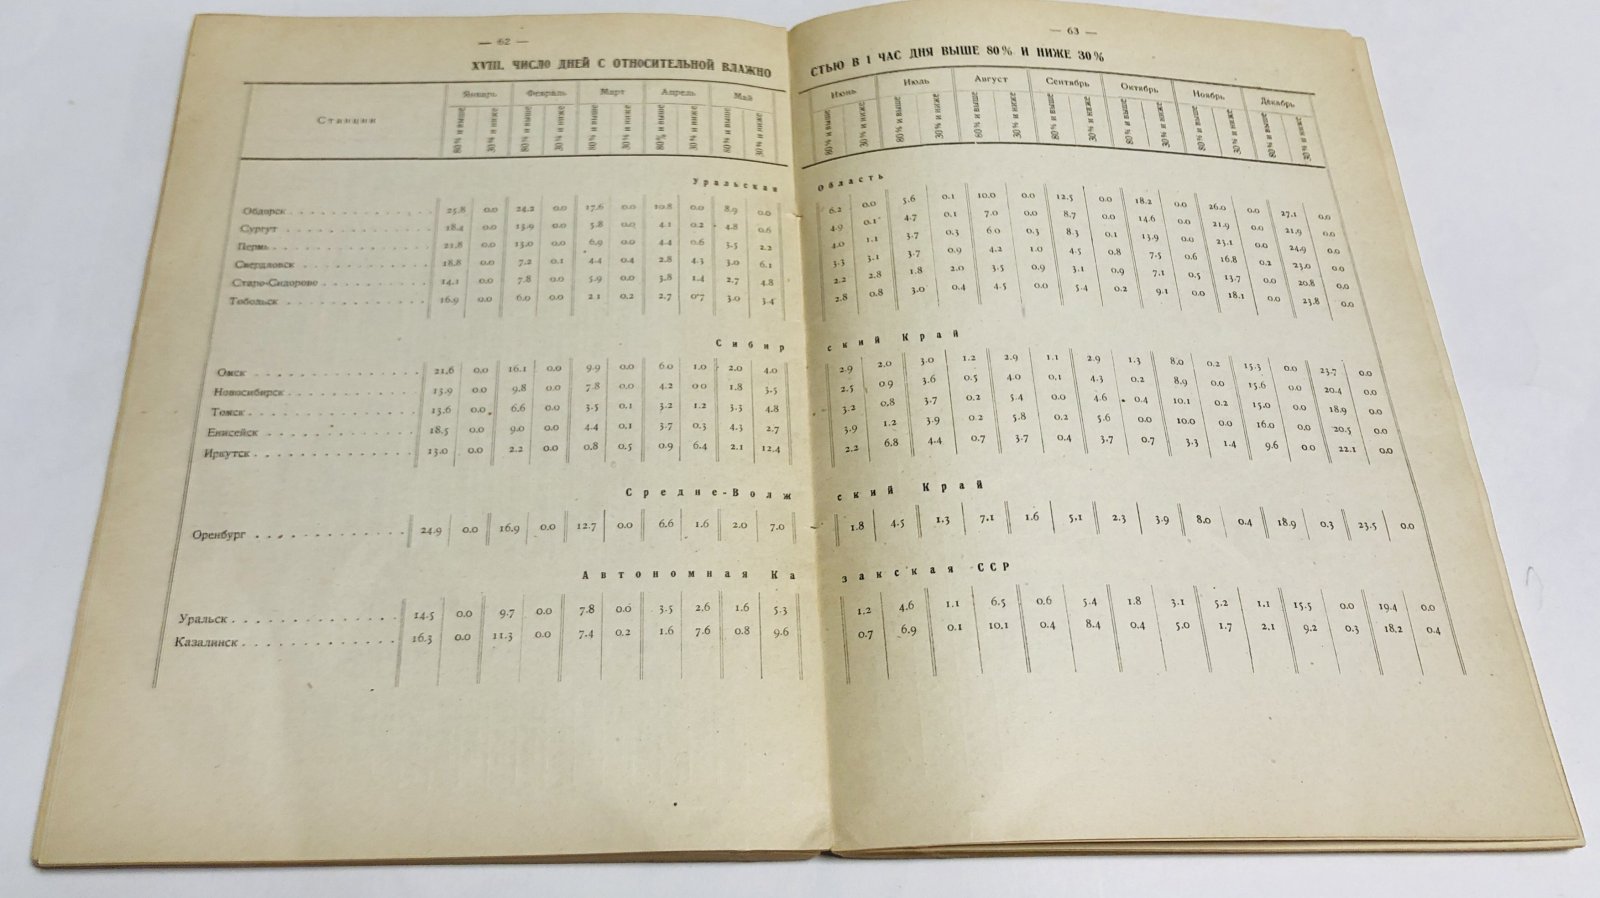 — 62 —
XVIII. ЧИСЛО ДНЕЙ С ОТНОСИТЕЛЬНОЙ ВЛАЖНО
Станции
Январь Февраль Март Апрель Май
80% и выше 30% и ниже 80% и выше 30% и ниже 80% и выше 30% и ниже 80% и выше 30% и ниже 80% и выше 30% и ниже
Уральская
Обдорск 25.8 0.0 24.2 0.0 17.6 0.0 10.8 0.0 8.9 0.0
Сургут 18.4 0.0 13.9 0.0 5.8 0.0 4.1 0.2 4.8 0.6
Пермь 21.8 0.0 13.0 0.0 6.9 0.0 4.4 0.6 3.5 2.2
Свердловск 18.8 0.0 7.2 0.1 4.4 0.4 2.8 4.3 3.0 6.1
Старо-Сидорово 14.1 0.0 7.8 0.0 5.9 0.0 3.8 1.4 2.7 4.8
Тобольск 16.9 0.0 6.0 0.0 2.1 0.2 2.7 0.7 3.0 3.4
Сибир
Омск 21.6 0.0 16.1 0.0 9.9 0.0 6.0 1.0 2.0 4.0
Новосибирск 13.9 0.0 9.8 0.0 7.8 0.0 4.2 0.0 1.8 3.5
Томск 13.6 0.0 6.6 0.0 3.5 0.1 3.2 1.2 3.3 4.8
Енисейск 18.5 0.0 9.0 0.0 4.4 0.1 3.7 0.3 4.3 2.7
Иркутск 13.0 0.0 2.2 0.0 0.8 0.5 0.9 6.4 2.1 12.4
Средне-Волж
Оренбург 24.9 0.0 16.9 0.0 12.7 0.0 6.6 1.6 2.0 7.0
Автономная Ка
Уральск 14.5 0.0 9.7 0.0 7.8 0.0 3.5 2.6 1.6 5.3
Казалинск 16.3 0.0 11.3 0.0 7.4 0.2 1.6 7.6 0.8 9.6
— 63 —
СТЬЮ В 1 ЧАС ДНЯ ВЫШЕ 80% И НИЖЕ 30%
Июнь Июль Август Сентябрь Октябрь Ноябрь Декабрь
80% и выше 30% и ниже 80% и выше 30% и ниже 80% и выше 30% и ниже 80% и выше 30% и ниже 80% и выше 30% и ниже 80% и выше 30% и ниже 80% и выше 30% и ниже
Область
6.2 0.0 5.6 0.1 10.0 0.0 12.5 0.0 18.2 0.0 26.0 0.0 27.1 0.0
4.9 0.1 4.7 0.1 7.0 0.0 8.7 0.0 14.6 0.0 21.9 0.0 21.9 0.0
4.0 1.1 3.7 0.3 6.0 0.3 8.3 0.1 13.9 0.0 23.1 0.0 24.9 0.0
3.3 3.1 3.7 0.9 4.2 1.0 4.5 0.8 7.5 0.6 16.8 0.2 23.0 0.0
2.2 2.8 1.8 2.0 3.5 0.9 3.1 0.9 7.1 0.5 13.7 0.0 20.8 0.0
2.8 0.8 3.0 0.4 4.5 0.0 5.4 0.2 9.1 0.0 18.1 0.0 23.8 0.0
ский Край
2.9 2.0 3.0 1.2 2.9 1.1 2.9 1.3 8.0 0.2 15.3 0.0 23.7 0.0
2.5 0.9 3.6 0.5 4.0 0.1 4.3 0.2 8.9 0.0 15.6 0.0 20.4 0.0
3.2 0.8 3.7 0.2 5.4 0.0 4.6 0.4 10.1 0.2 15.0 0.0 18.9 0.0
3.9 1.2 3.9 0.2 5.8 0.2 5.6 0.0 10.0 0.0 16.0 0.0 20.5 0.0
2.2 6.8 4.4 0.7 3.7 0.4 3.7 0.7 3.3 1.4 9.6 0.0 22.1 0.0
ский Край
1.8 4.5 1.3 7.1 1.6 5.1 2.3 3.9 8.0 0.4 18.9 0.3 23.5 0.0
закская ССР
1.2 4.6 1.1 6.5 0.6 5.4 1.8 3.1 5.2 1.1 15.5 0.0 19.4 0.0
0.7 6.9 0.1 10.1 0.4 8.4 0.4 5.0 1.7 2.1 9.2 0.3 18.2 0.4